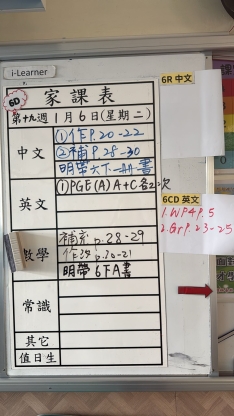 i-Learner
6D
家課表
第十九週 1月6日(星期二)
中文
①作P.20-22
②補P.28-30
明帶大下一冊書
英文
①PGE(A) A+C各2次
數學
補充 p.28-29
作 p.20-21
明帶6下A書
常識
其它
值日生
6R 中文
6CD 英文
1.WP4P.5
2.GrP.23-25